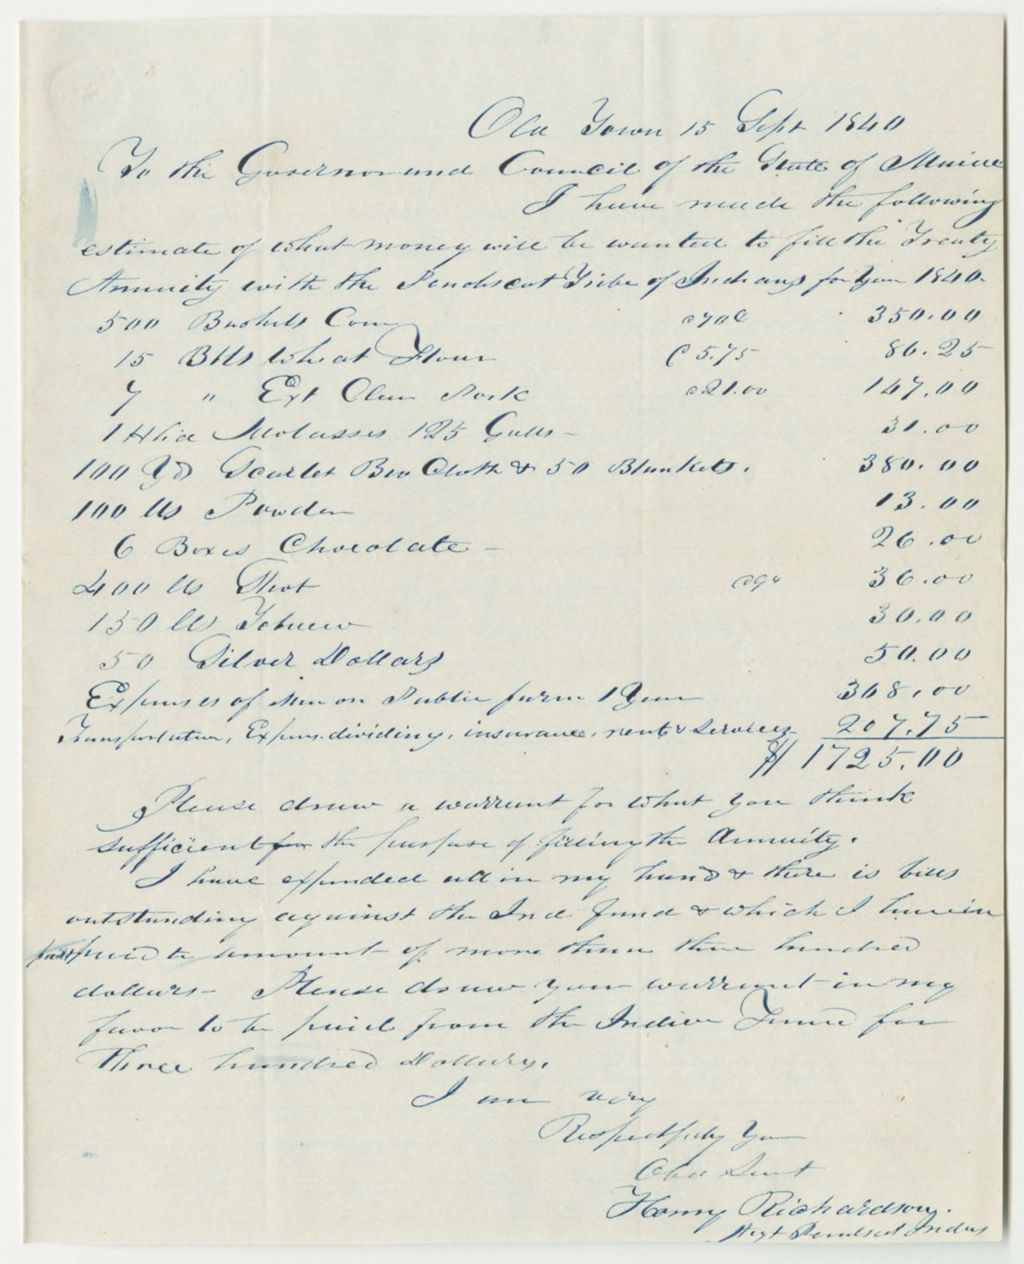 Old Town 15 Sept 1840
To the Governor and Council of the State of Maine
I have made the following
estimate of what money will be wanted to fill the Treaty
Annuity with the Penobscot Tribe of Indians for year 1840.
500 Bushels Corn @70c 350.00
15 Bbls Wheat Flour @ 5.75 86.25
7 " Ext Clear Pork @21.00 147.00
1 Hhd Molasses 125 Galls - 31.00
100 Yd Scarlet Bro Cloth & 50 Blankets. 380.00
100 lbs Powder 13.00
6 Boxes Chocolate - 26.00
400 lbs Shot @9c 36.00
150 lbs Tobacco 30.00
50 Silver Dollars 50.00
Expenses of Man on Public farm 1 Year 368.00
Transportation, Expens. dividing, insurance, rent & services 207.75
$1725.00
Please draw a warrant for what you think
sufficient for the purpose of filling the Annuity.
I have expended all in my hand & there is bills
outstanding against the Ind fund & which I have in
paid to amount of more than three hundred
dollars - Please draw your warrant in my
favor to be paid from the Indian Fund for
Three hundred Dollars.
I am very
Respectfully Your
Obed Servt
Henry Richardson.
Agt Penobscot Indns